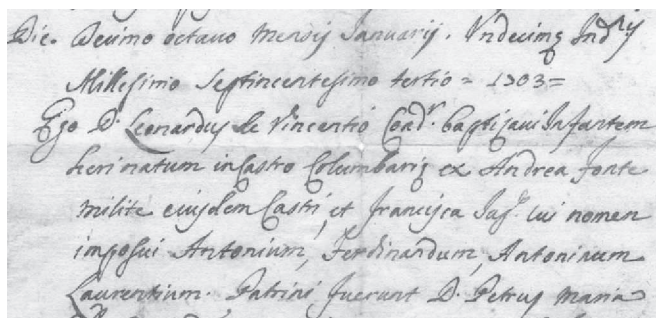 Die Decimo octavo Mensis Januarii. Undecimę Ind.nis
Millesimo septincentesimo tertio = 1703 =
Ego D. Leonardus de Vincentio Coad.r baptizavi Infantem
heri natum in Castro Columbarię ex Andrea fonte
milite eiusdem Castri, et francisca cui nomen
imposui Antonium, Ferdinandum, Antoninum
Laurentium. Patrini fuerunt D. Petrus Maria